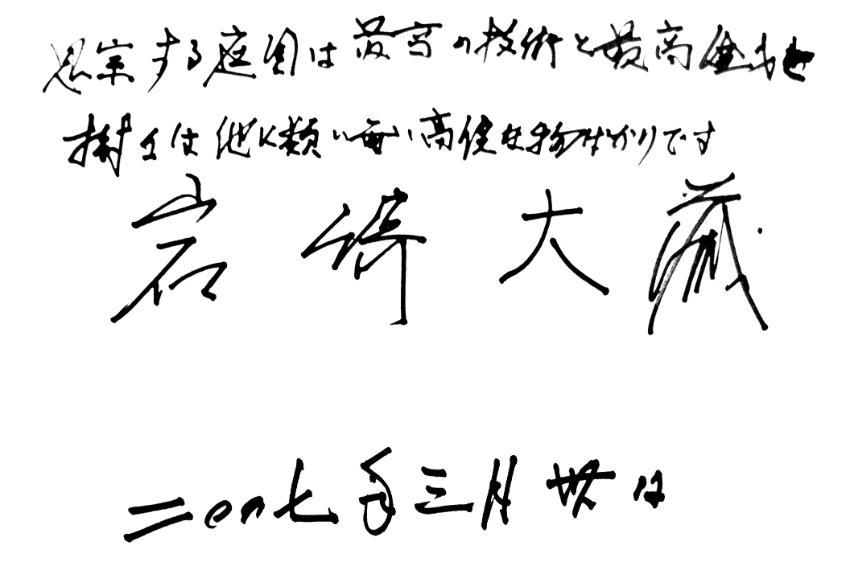 する庭園は最高の技術と最高
樹は他に類い無い高価な物ばかりです
岩崎大蔵
二〇〇七年三月廿八日